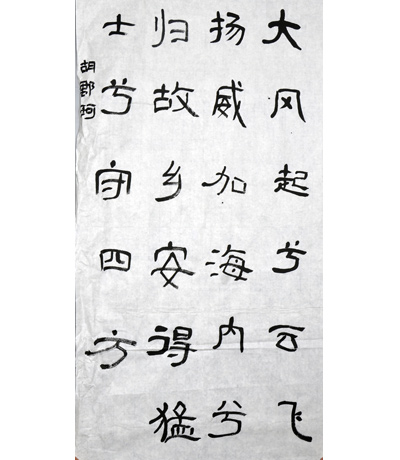 大风起兮云飞
扬威加海内兮
归故乡安得猛
士兮守四方
胡郡珂